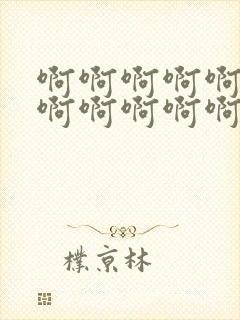 啊啊啊啊啊
啊啊啊啊啊
樸京林